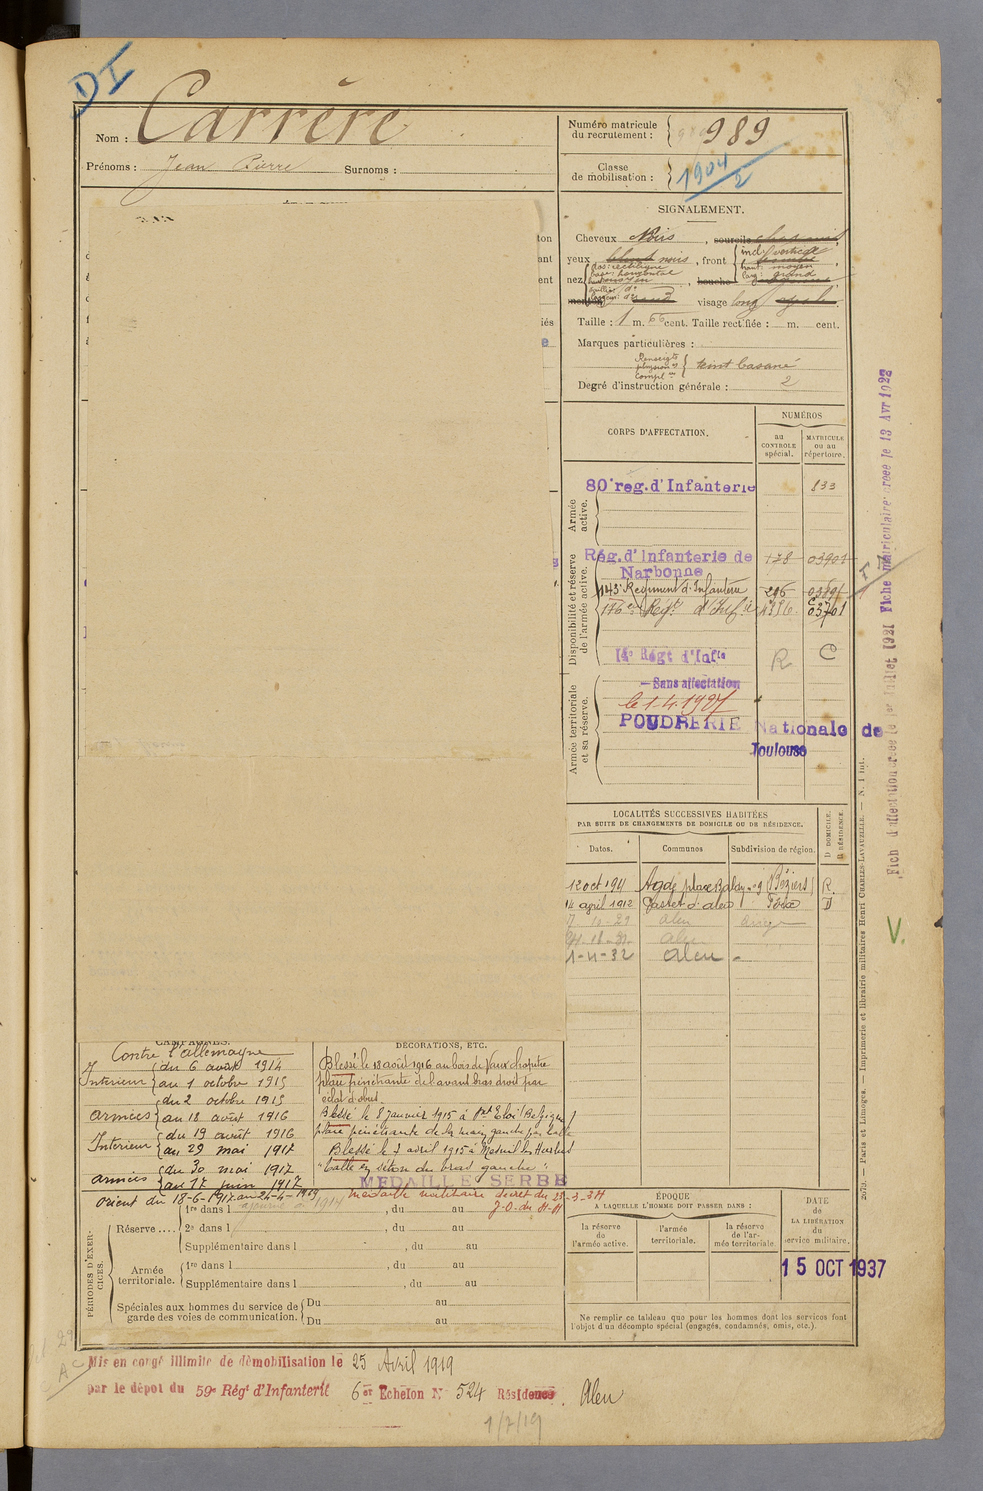 DI
Nom : Carrère
Prénoms : Jean Pierre Surnoms :
Numéro matricule
du recrutement : 989
Classe
de mobilisation : 1904/2
SIGNALEMENT.
Cheveux Noirs, sourcils
yeux noirs, front
ind. verticale
haut: moyen
larg: grand
nez
dos: rectiligne
base: horizontale
bouche
visage long
Taille : 1 m. 66 cent. Taille rectifiée : m. cent.
Marques particulières :
Renseigts
physion
compl
teint basané
Degré d'instruction générale : 2
CORPS D'AFFECTATION.
NUMÉROS
au
CONTROLE
spécial.
MATRICULE
ou au
répertoire.
Armée
active.
80e reg. d'Infanterie 833
Disponibilité et réserve
de l'armée active.
Rég. d'Infanterie de 178 03901
Narbonne
143e Régiment d'Infanterie 296
176e Régt d'Infie 03701
14e Régt d'Infie R C
Armée territoriale
et sa réserve.
Sans affectation
le 1.4.1927
POUDRERIE Nationale de
Toulouse
LOCALITÉS SUCCESSIVES HABITÉES
PAR SUITE DE CHANGEMENTS DE DOMICILE OU DE RÉSIDENCE.
Dates. Communes Subdivision de région.
D DOMICILE.
R RÉSIDENCE.
12 oct 1911 Agde place (Béziers) R.
14 april 1912 d'aleu Foix D
Aleu
Aleu
1-4-32 Aleu
CAMPAGNES.
Contre l'allemagne
Intérieur du 6 août 1914
au 1 octobre 1915
armées du 2 octobre 1915
au 18 août 1916
Intérieur du 19 août 1916
au 29 mai 1917
armées du 30 mai 1917
au 17 juin 1917
Orient du 18-6-1917 au 24-4-1919
DÉCORATIONS, ETC.
Blessé le 18 août 1916 au bois de Vaux chapitre
plaie pénétrante de l'avant bras droit par
éclat d'obus.
Blessé le 8 Janvier 1915 à St Eloi (Belgique)
plaie pénétrante de la main gauche par balle
Blessé le 7 avril 1915 à Mesnil les Hurlus
"balle en séton du bras gauche".
MEDAILLE SERBE
médaille militaire decret du 23-3-34
J.O. du
PÉRIODES D'EXERCICES.
Réserve
1re dans l ajourné 1914, du au
2e dans l , du au
Supplémentaire dans l , du au
Armée
territoriale.
1re dans l , du au
Supplémentaire dans l , du au
Spéciales aux hommes du service de
garde des voies de communication.
Du au
Du au
ÉPOQUE
A LAQUELLE L'HOMME DOIT PASSER DANS :
la réserve
de
l'armée active.
l'armée
territoriale.
la réserve
de l'armée territoriale.
DATE
de
LA LIBÉRATION
du
service militaire.
15 OCT 1937
Ne remplir ce tableau que pour les hommes dont les services font
l'objet d'un décompte spécial (engagés, condamnés, omis, etc.).
Mis en congé illimité de démobilisation le 25 Avril 1919
par le dépôt du 59e Régt d'Infanterie 6er Echelon N° 524 Résidence. Aleu
1/7/19
Fiche matriculaire créée le 13 Avr 1922
Fich d'affectation créée le 1er Juillet 1921
V.
Paris et Limoges. — Imprimerie et librairie militaires Henri CHARLES-LAVAUZELLE. — N. 1 int.